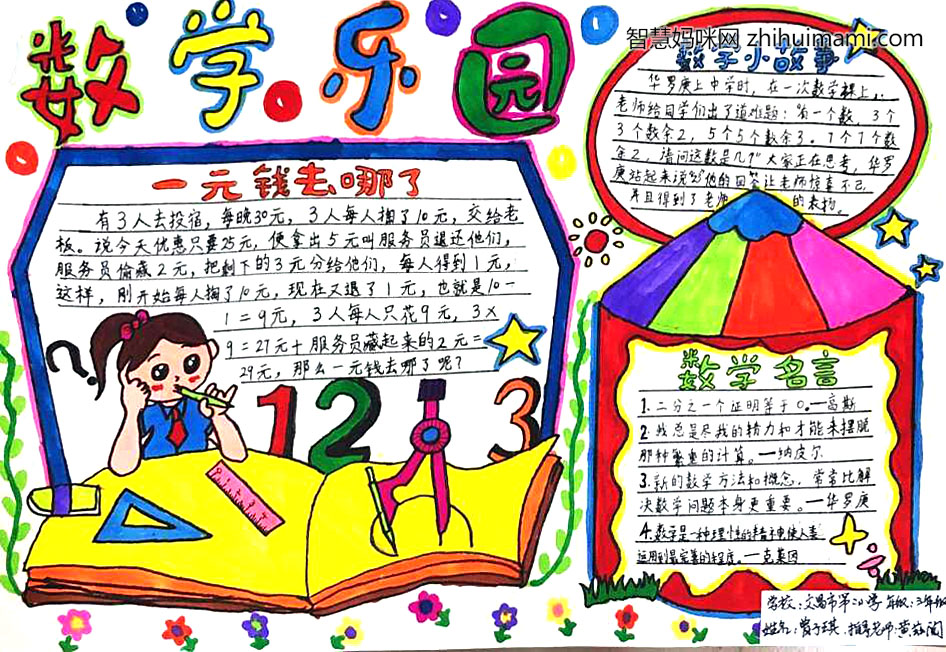 数学乐园
智慧妈咪网 zhihuimami.com
一元钱去哪了
有3人去投宿，每晚30元，3人每人掏了10元，交给老
板。说今天优惠只要25元，便拿出5元叫服务员退还他们，
服务员偷藏2元，把剩下的3元分给他们，每人得到1元，
这样，刚开始每人掏了10元，现在又退了1元，也就是10-
1=9元，3人每人只花9元，3×
9=27元+服务员藏起来的2元=
29元，那么一元钱去哪了呢？
?
1 2 3
数学小故事
华罗庚上中学时，在一次数学课上，
老师给同学们出了道难题："有一个数，3个
3个数余2，5个5个数余3。7个7个数
余2，请问这数是几？"大家正在思考，华罗
庚站起来说"23"他的回答让老师惊喜不已，
并且得到了老师 的表扬。
数学名言
1.二分之一个证明等于0。—高斯
2.我总是尽我的精力和才能来摆脱
那种繁重的计算。—纳皮尔
3.新的数学方法和概念，常常比解
决数学问题本身更重要。—华罗庚
4.数学是一种理性的精神使人类
运用到最完善的程度。—克莱因
学校：文昌市第二小学 年级：三年级
姓名：曾子琪 指导老师：黄